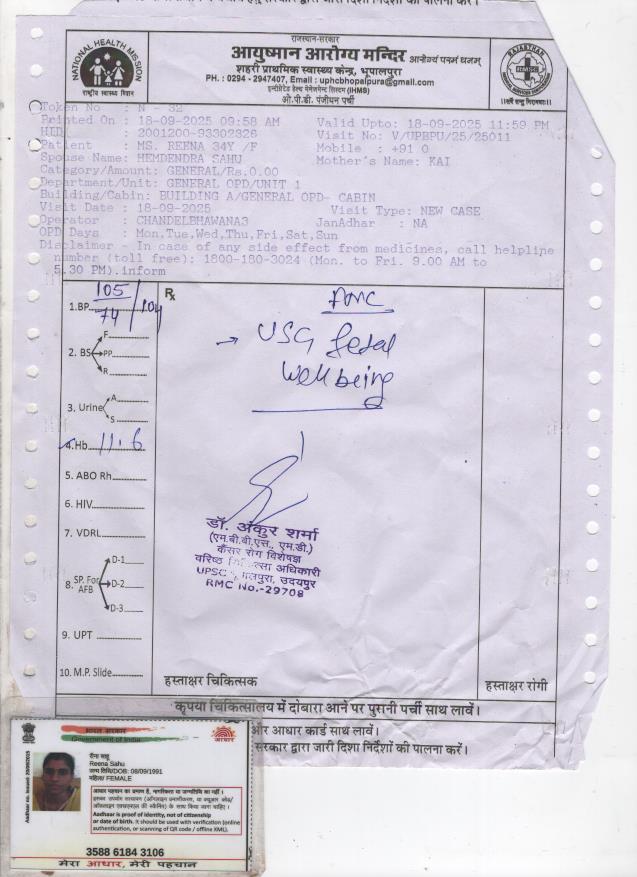 राजस्थान-सरकार
आयुष्मान आरोग्य मन्दिर आरोग्यं परमं धनम्
शहरी प्राथमिक स्वास्थ्य केन्द्र, भूपालपुरा
PH. : 0294 - 2947407, Email : uphcbhopalpura@gmail.com
इन्टीग्रेटेड हेल्थ मेनेजमेन्ट सिस्टम (IHMS)
ओ.पी.डी. पंजीयन पर्ची
NATIONAL HEALTH MISSION
राष्ट्रीय स्वास्थ्य मिशन
RAJASTHAN
Token No : N - 32
Printed On : 18-09-2025 09:58 AM Valid Upto: 18-09-2025 11:59 PM
: 2001200-93302326 Visit No: V/UPBPU/25/25011
Patient : MS. REENA 34Y /F Mobile : +91 0
Spouse Name: HEMDENDRA SAHU Mother's Name: KAI
Category/Amount: GENERAL/Rs.0.00
Department/Unit: GENERAL OPD/UNIT 1
Building/Cabin: BUILDING A/GENERAL OPD- CABIN
Visit Date : 18-09-2025 Visit Type: NEW CASE
Operator : CHANDELBHAWANA3 JanAdhar : NA
OPD Days : Mon,Tue,Wed,Thu,Fri,Sat,Sun
Disclaimer - In case of any side effect from medicines, call helpline
number (toll free): 1800-180-3024 (Mon. to Fri. 9.00 AM to
5.30 PM).inform
1.BP 105/74 /104
2. BS F
PP
R
3. Urine A
S
4.Hb 11.6
5. ABO Rh
6. HIV
7. VDRL
8. SP. For AFB D-1
D-2
D-3
9. UPT
10. M.P. Slide
Rx
ANC
→ USG fetal
well being
डॉ. अंकुर शर्मा
(एम.बी.बी.एस., एम.डी.)
कैंसर रोग विशेषज्ञ
वरिष्ठ चिकित्सा अधिकारी
उदयपुर
RMC No.-29708
हस्ताक्षर चिकित्सक
हस्ताक्षर रोगी
कृपया चिकित्सालय में दोबारा आने पर पुरानी पर्ची साथ लावें।
और आधार कार्ड साथ लावें।
सरकार द्वारा जारी दिशा निर्देशों की पालना करें।
भारत सरकार
Government of India
आधार
रीना साहू
Reena Sahu
जन्म तिथि/DOB: 08/09/1991
महिला/ FEMALE
आधार पहचान का प्रमाण है, नागरिकता या जन्मतिथि का नहीं।
Aadhaar is proof of identity, not of citizenship
or date of birth. It should be used with verification (online
authentication, or scanning of QR code / offline XML).
3588 6184 3106
मेरा आधार, मेरी पहचान